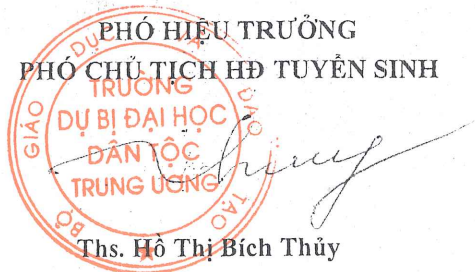 PHÓ HIỆU TRƯỞNG
PHÓ CHỦ TỊCH HĐ TUYỂN SINH
BỘ GIÁO DỤC VÀ ĐÀO TẠO
TRƯỜNG
DỰ BỊ ĐẠI HỌC
DÂN TỘC
TRUNG ƯƠNG
Ths. Hồ Thị Bích Thủy